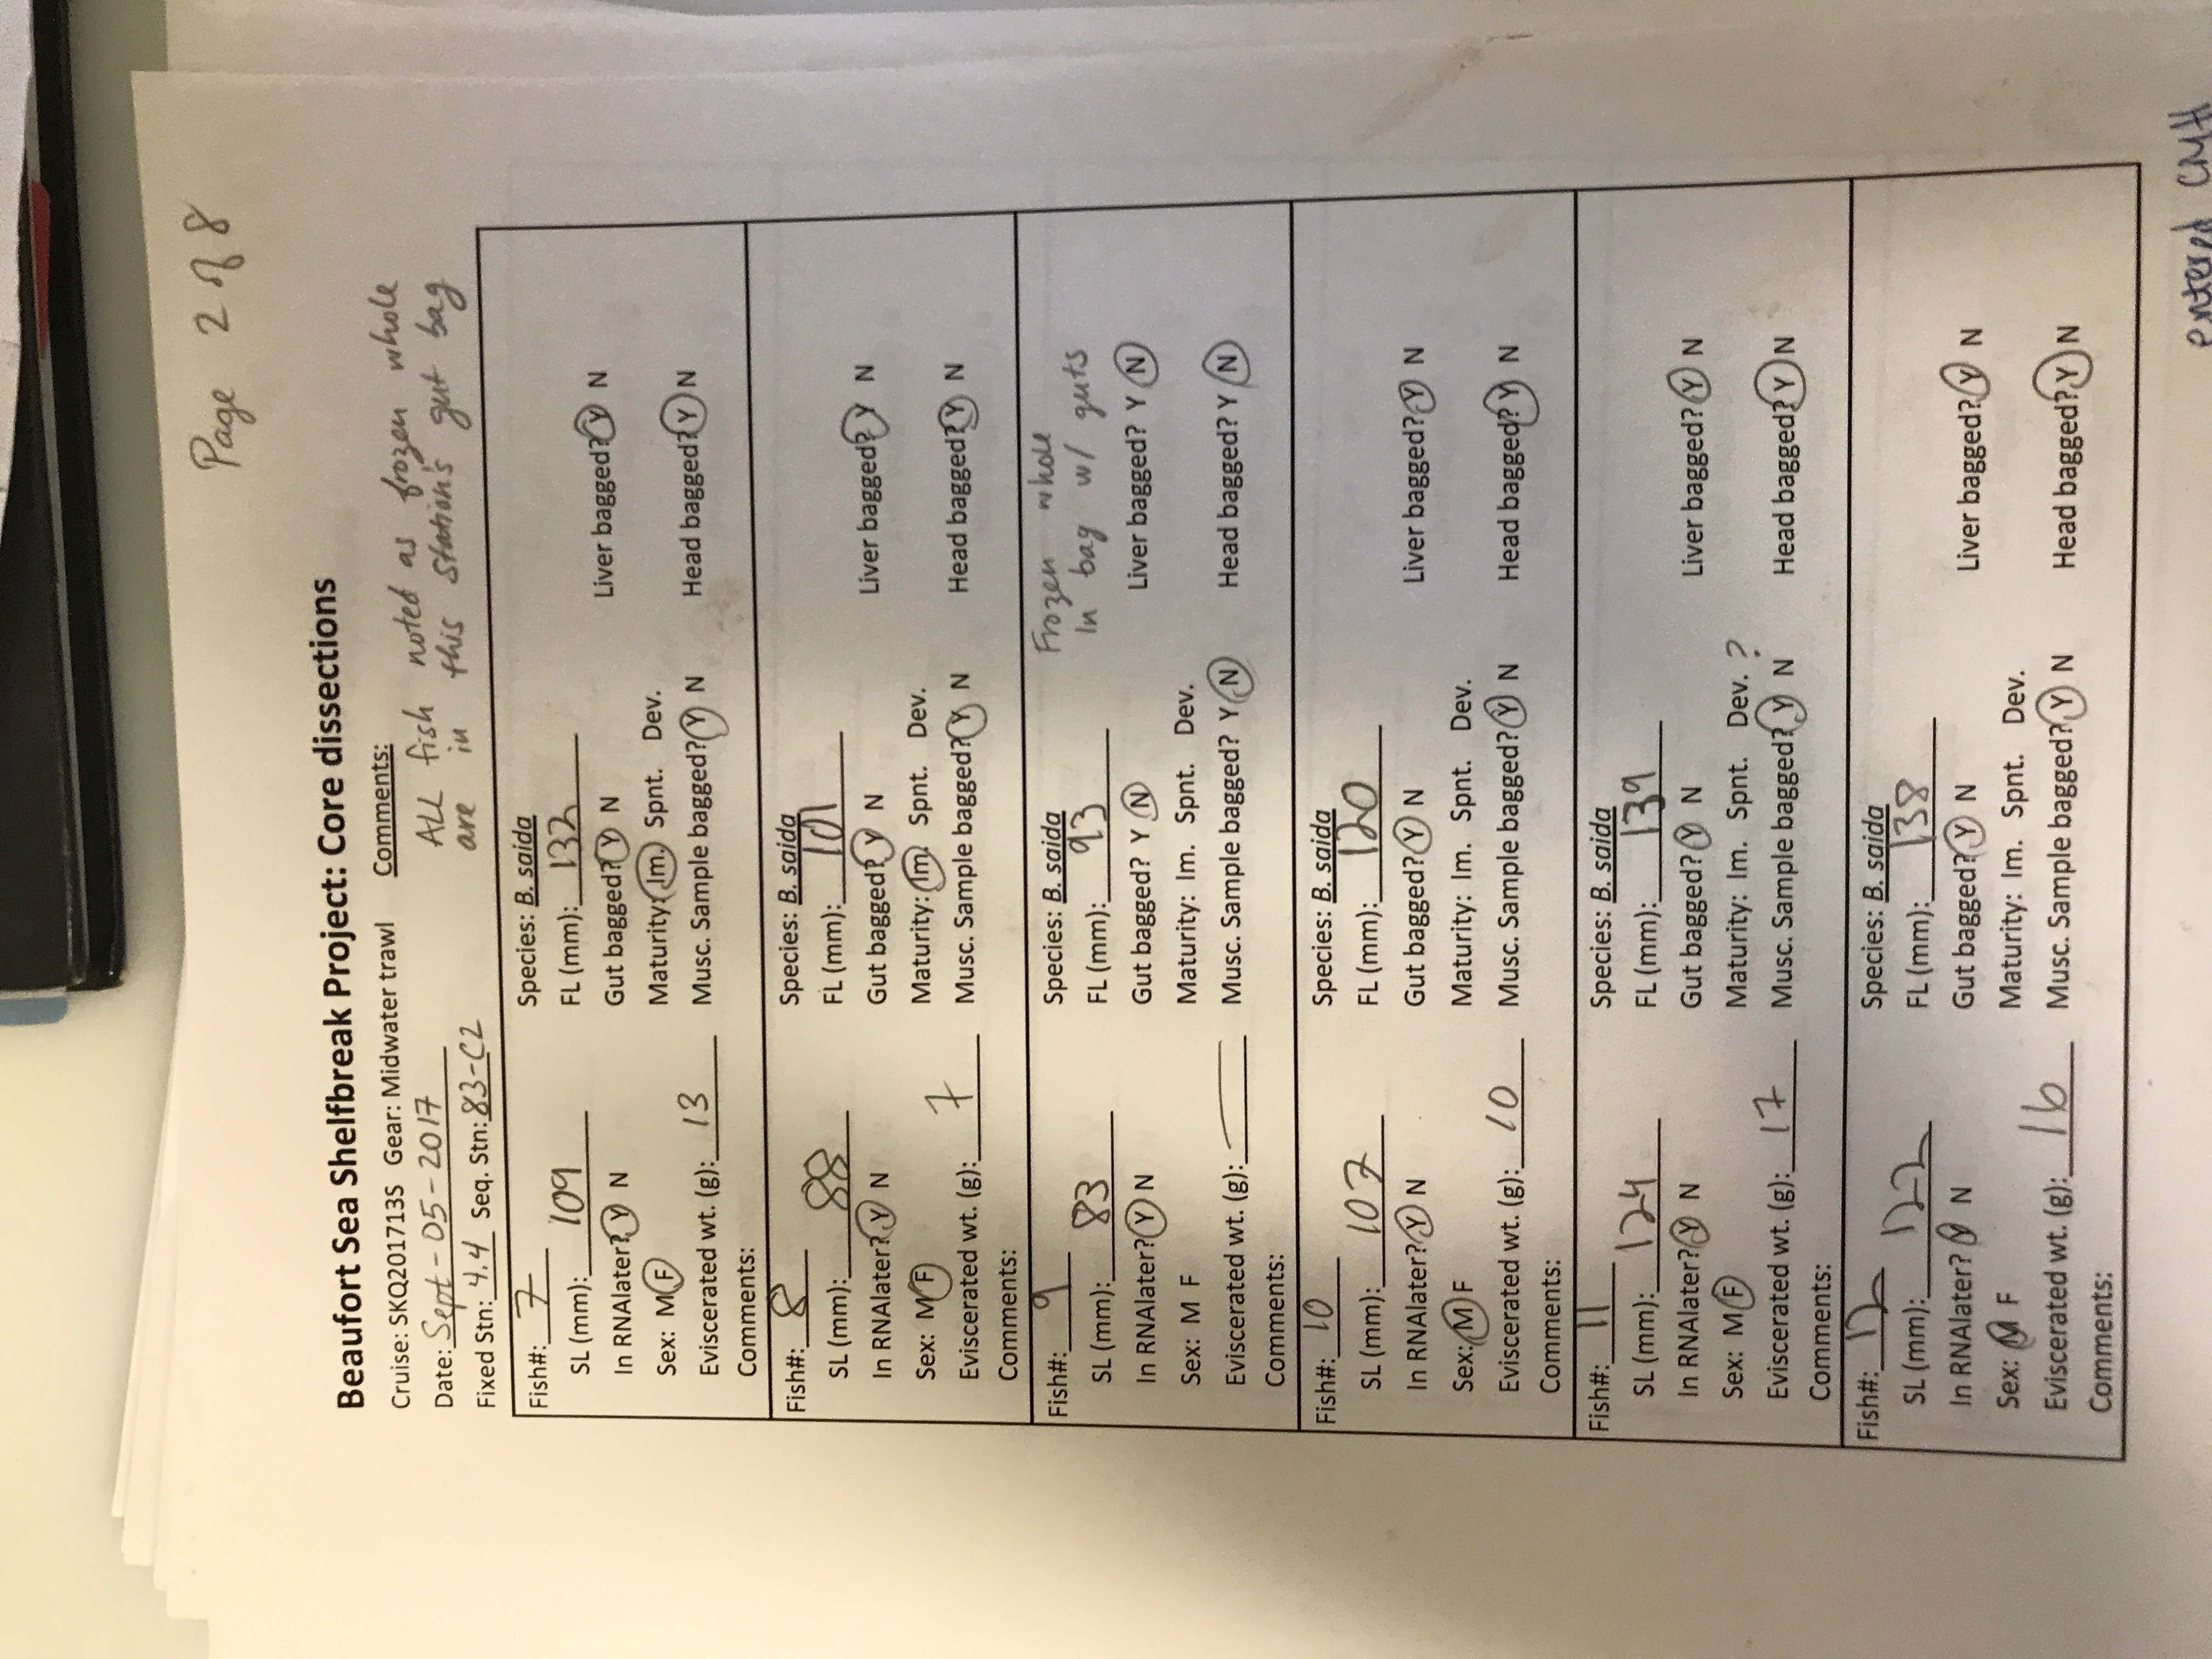 Page 2 of 8
Beaufort Sea Shelfbreak Project: Core dissections
Cruise: SKQ201713S Gear: Midwater trawl Comments:
Date: Sept-05-2017 ALL fish noted as frozen whole
Fixed Stn: 4.4 Seq. Stn: 83-C2 are in this station's gut bag
Fish#: 7 Species: B. saida
SL (mm): 109 FL (mm): 132
In RNAlater? Y N Gut bagged? Y N Liver bagged? Y N
Sex: M F Maturity: Im. Spnt. Dev.
Eviscerated wt. (g): 13 Musc. Sample bagged? Y N Head bagged? Y N
Comments:
Fish#: 8 Species: B. saida
SL (mm): 88 FL (mm): 101
In RNAlater? Y N Gut bagged? Y N Liver bagged? Y N
Sex: M F Maturity: Im. Spnt. Dev.
Eviscerated wt. (g): 7 Musc. Sample bagged? Y N Head bagged? Y N
Comments:
Fish#: 9 Species: B. saida Frozen whole
SL (mm): 83 FL (mm): 93 In bag w/ guts
In RNAlater? Y N Gut bagged? Y N Liver bagged? Y N
Sex: M F Maturity: Im. Spnt. Dev.
Eviscerated wt. (g): — Musc. Sample bagged? Y N Head bagged? Y N
Comments:
Fish#: 10 Species: B. saida
SL (mm): 107 FL (mm): 120
In RNAlater? Y N Gut bagged? Y N Liver bagged? Y N
Sex: M F Maturity: Im. Spnt. Dev.
Eviscerated wt. (g): 10 Musc. Sample bagged? Y N Head bagged? Y N
Comments:
Fish#: 11 Species: B. saida
SL (mm): 124 FL (mm): 139
In RNAlater? Y N Gut bagged? Y N Liver bagged? Y N
Sex: M F Maturity: Im. Spnt. Dev. ?
Eviscerated wt. (g): 17 Musc. Sample bagged? Y N Head bagged? Y N
Comments:
Fish#: 12 Species: B. saida
SL (mm): 122 FL (mm): 138
In RNAlater? Y N Gut bagged? Y N Liver bagged? Y N
Sex: M F Maturity: Im. Spnt. Dev.
Eviscerated wt. (g): 16 Musc. Sample bagged? Y N Head bagged? Y N
Comments:
entered CMH